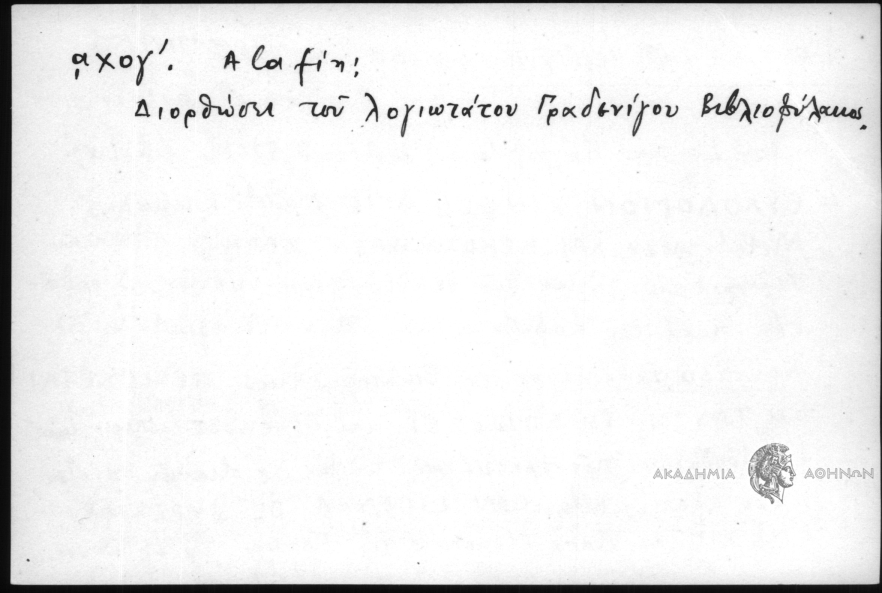 ͵αχογ'. A la fin:
Διορθώσει τοῦ λογιωτάτου Γραδενίγου Βιβλιοφύλακος.
ΑΚΑΔΗΜΙΑ ΑΘΗΝΩΝ